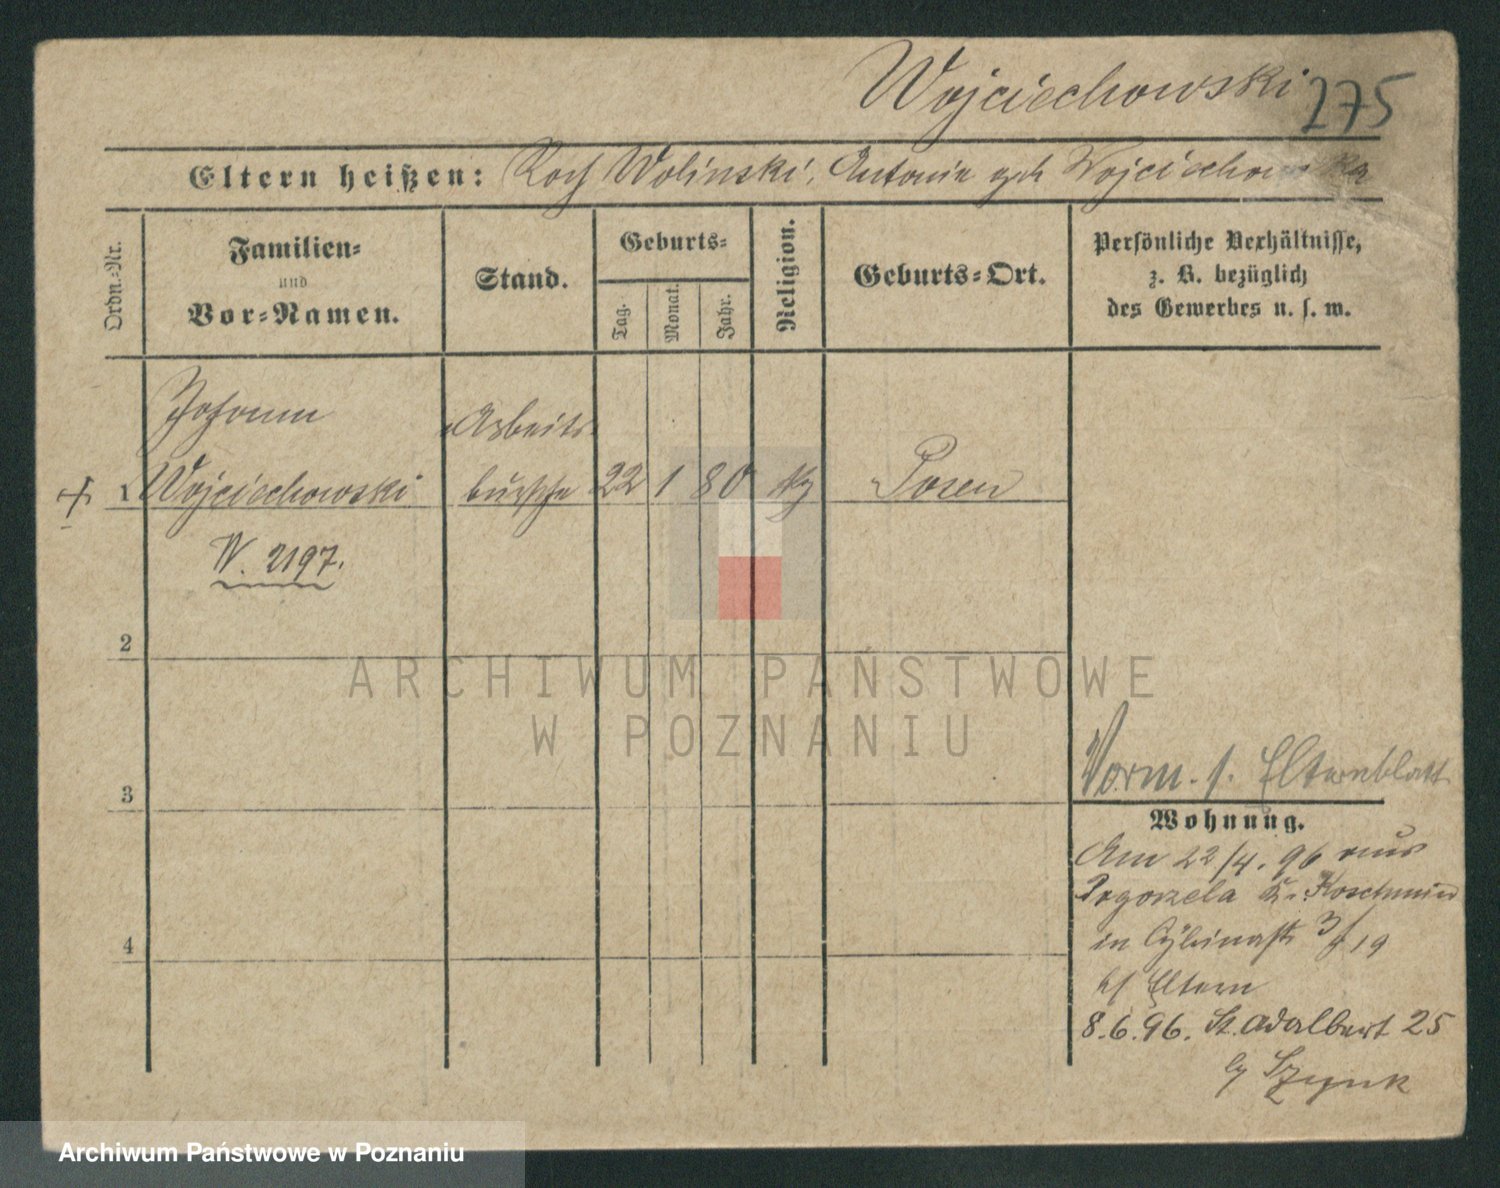 Wojciechowski 275
Eltern heißen: Roch Wolinski, Antonie geb Wojciechowska
Ordn.-Nr.
Familien-
und
Vor-Namen.
Stand.
Geburts-
Tag.
Monat.
Jahr.
Religion.
Geburts-Ort.
Persönliche Verhältnisse,
z. B. bezüglich
des Gewerbes u. s. w.
Johann Arbeits-
1 Wojciechowski bursche 22 1 80 Posen
W. 2197.
2
ARCHIWUM PAŃSTWOWE
W POZNANIU
3
4
Vorm. s. Elternblatt
Wohnung.
Am 22/4. 96 aus
Pogorzela Kr. Koschmin
in 3/19
b/ Eltern
8.6.96. St. Adalbert 25
Archiwum Państwowe w Poznaniu